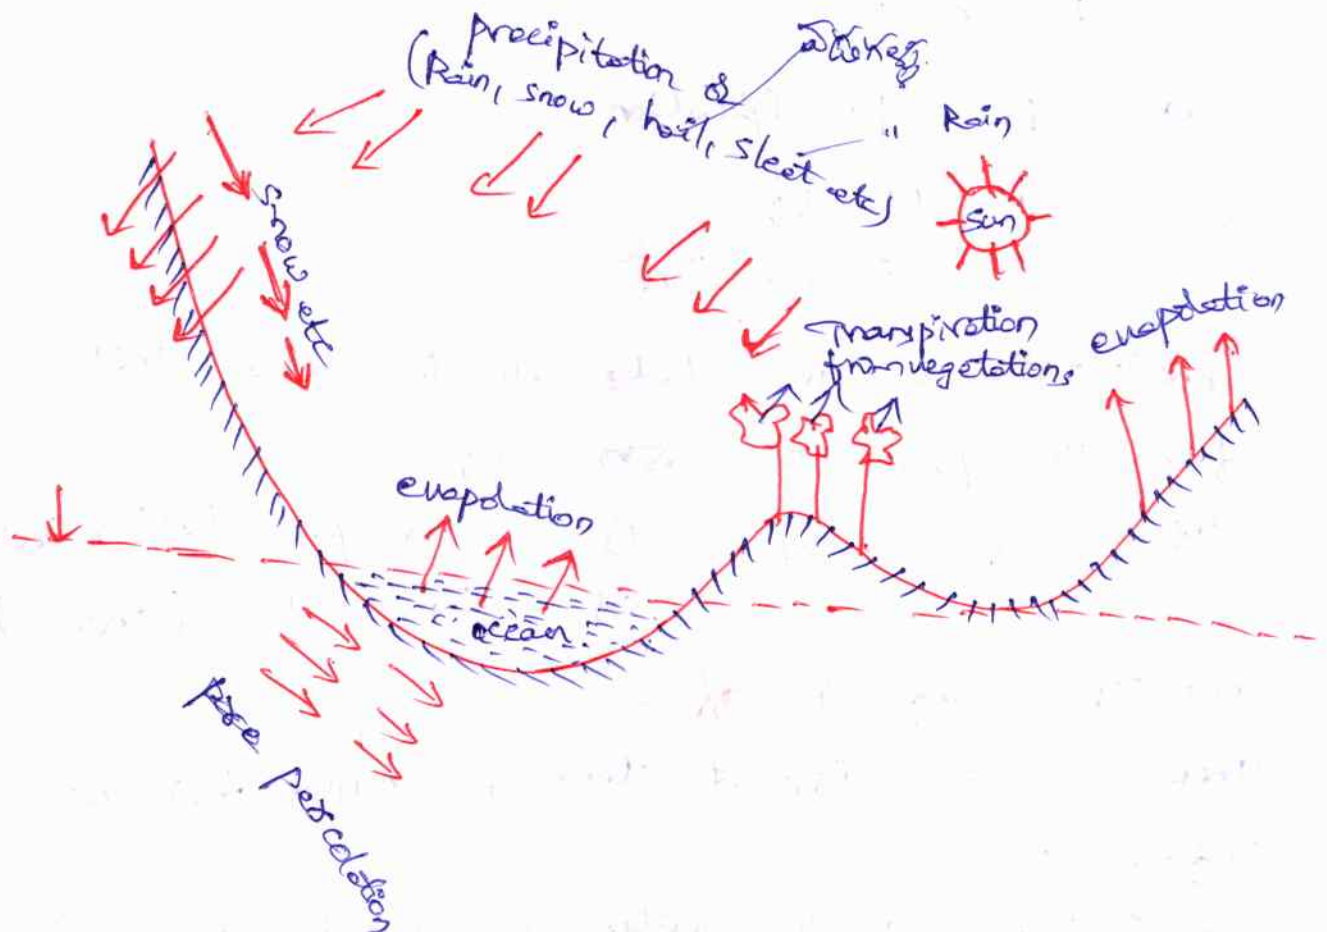 precipitation of
వడగళ్ళు
(Rain, snow, hail, sleet etc)
" Rain
Sun
snow etc
Transpiration
from vegetations
evaporation
evaporation
ocean
percolation